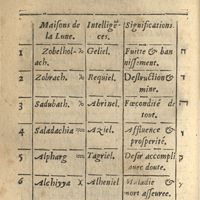 Maisons de la Lune. Intelligēces. Significations.
1 Zobelholach. Geliel. Fuitte & bannissement.
2 Zobrach. Requiel. Destruction & mine.
3 Sadubath. Abrinel. Fœcondité de tout.
4 Saladachia Aziel. Affluence & prosperité.
5 Alpharg Tagriel. Desir accompli avec doute.
6 Alchiyya Alheniel Maladie & mort asseuree.